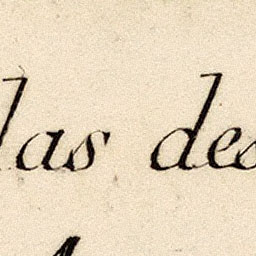 las des